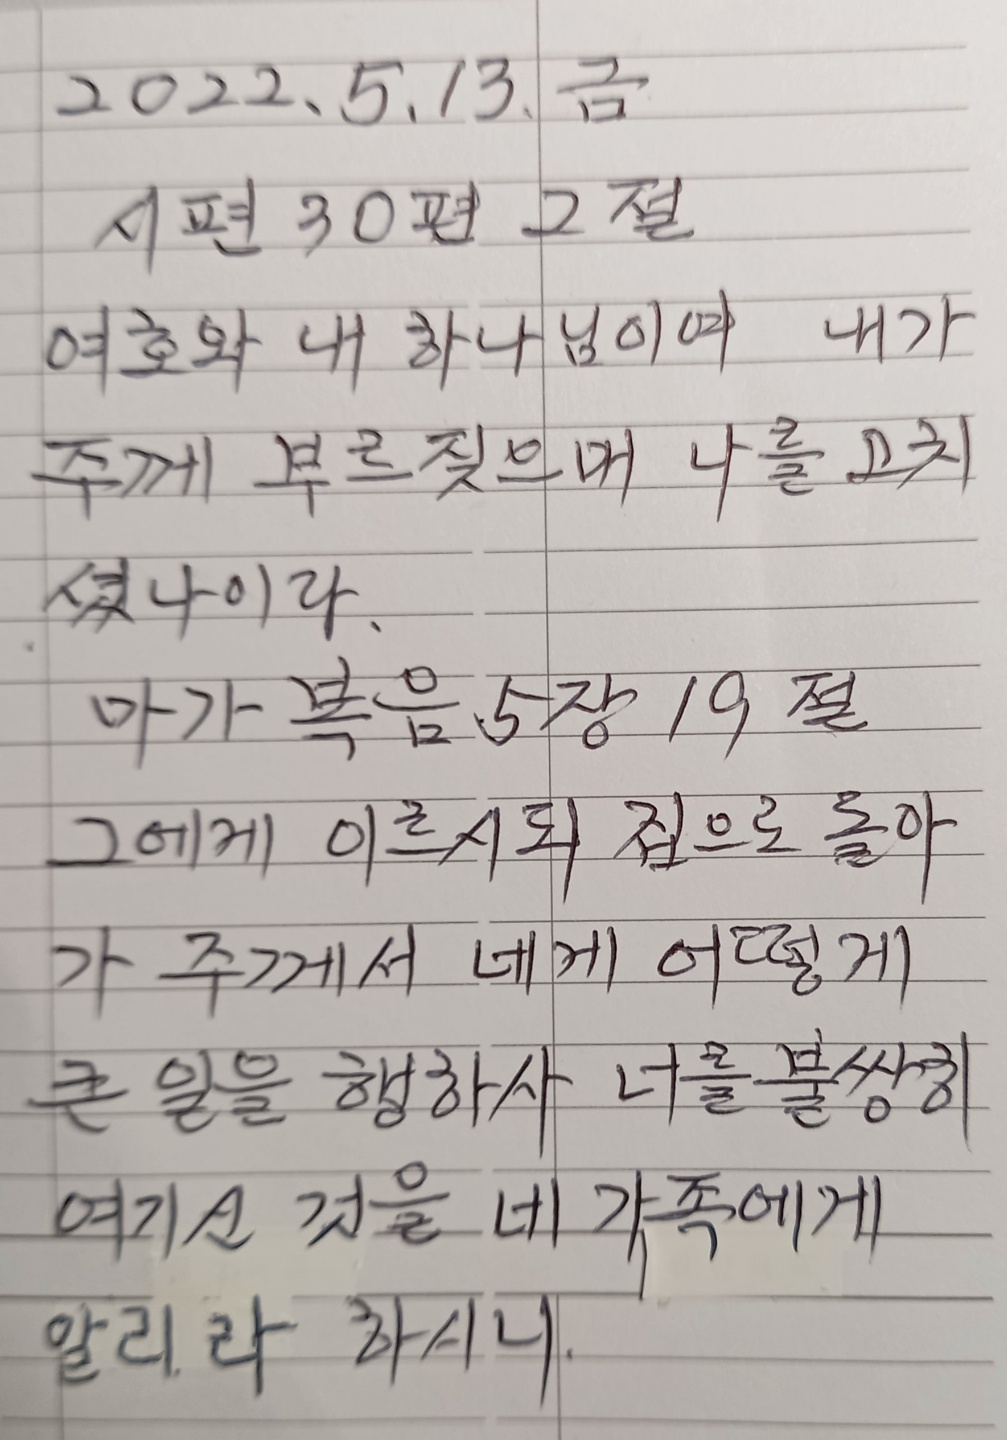 2022. 5. 13. 금
시편 30편 2절
여호와 내 하나님이여 내가
주께 부르짖으매 나를 고치
셨나이라.
마가복음 5장 19절
그에게 이르시되 집으로 돌아
가 주께서 네게 어떻게
큰 일을 행하사 너를 불쌍히
여기신 것을 네 가족에게
알리라 하시니.